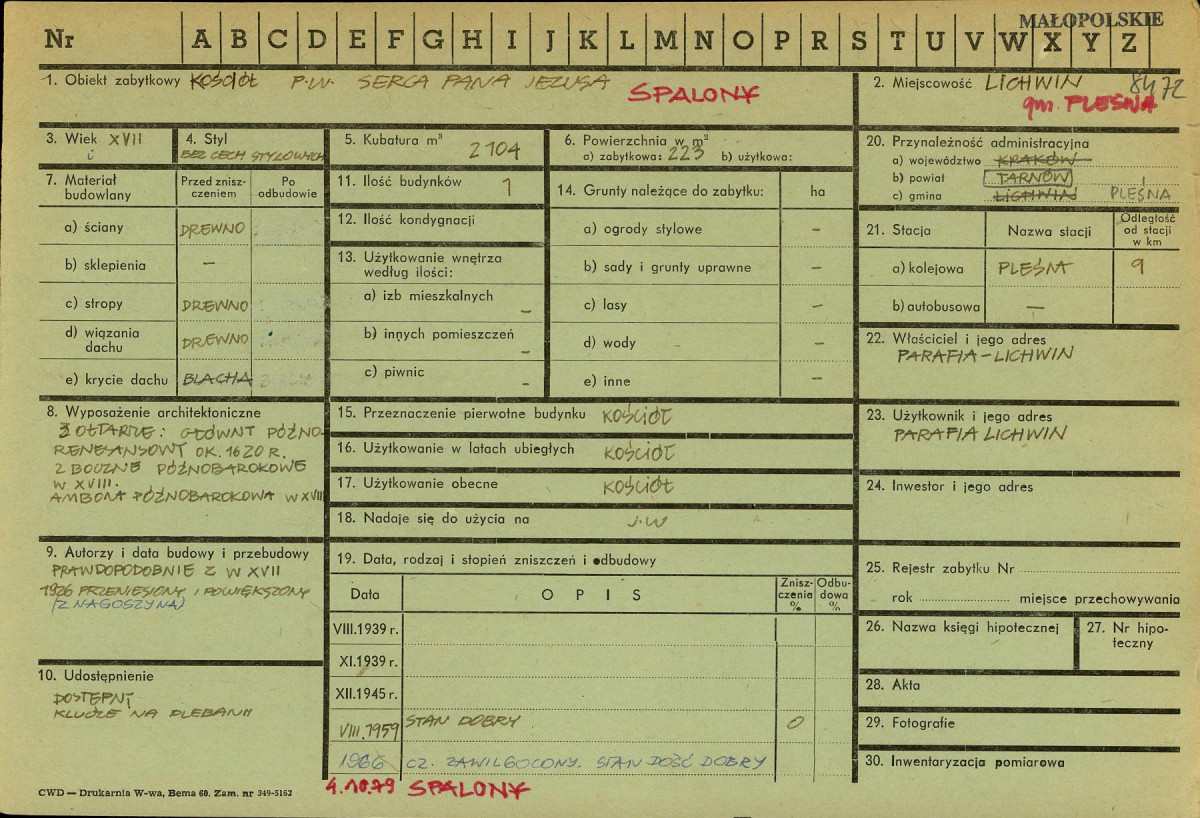 MAŁOPOLSKIE
Nr A B C D E F G H I J K L M N O P R S T U V W X Y Z
1. Obiekt zabytkowy KOŚCIÓŁ P.W. SERCA PANA JEZUSA SPALONY
2. Miejscowość LICHWIN 8472
gm. PLEŚNA
3. Wiek XVII
4. Styl
BEZ CECH STYLOWYCH
5. Kubatura m³ 2104
6. Powierzchnia w m²
a) zabytkowa: 223 b) użytkowa:
7. Materiał budowlany
Przed zniszczeniem
Po odbudowie
a) ściany DREWNO
b) sklepienia –
c) stropy DREWNO
d) wiązania dachu DREWNO
e) krycie dachu BLACHA
8. Wyposażenie architektoniczne
3 OŁTARZE: GŁÓWNY PÓŹNO-
RENESANSOWY OK. 1620 R.
2 BOCZNE PÓŹNOBAROKOWE
W XVIII.
AMBONA PÓŹNOBAROKOWA W XVIII
9. Autorzy i data budowy i przebudowy
PRAWDOPODOBNIE Z W XVII
1926 PRZENIESIONY I POWIĘKSZONY
(Z NAGOSZYNA)
10. Udostępnienie
DOSTĘPNY
KLUCZE NA PLEBANII
11. Ilość budynków 1
12. Ilość kondygnacji
13. Użytkowanie wnętrza
według ilości:
a) izb mieszkalnych –
b) innych pomieszczeń –
c) piwnic –
14. Grunty należące do zabytku: ha
a) ogrody stylowe –
b) sady i grunty uprawne –
c) lasy –
d) wody –
e) inne –
15. Przeznaczenie pierwotne budynku KOŚCIÓŁ
16. Użytkowanie w latach ubiegłych KOŚCIÓŁ
17. Użytkowanie obecne KOŚCIÓŁ
18. Nadaje się do użycia na J.W
19. Data, rodzaj i stopień zniszczeń i odbudowy
Data OPIS Zniszczenia % Odbudowa %
VIII.1939 r.
XI.1939 r.
XII.1945 r.
VIII.1959 STAN DOBRY 0
1966 CZ. ZAWILGOCONY. STAN DOŚĆ DOBRY
4.10.79 SPALONY
20. Przynależność administracyjna
a) województwo KRAKÓW
b) powiat TARNÓW
c) gmina LICHWIN PLEŚNA
21. Stacja Nazwa stacji Odległość od stacji w km
a) kolejowa PLEŚNA 9
b) autobusowa –
22. Właściciel i jego adres
PARAFIA – LICHWIN
23. Użytkownik i jego adres
PARAFIA LICHWIN
24. Inwestor i jego adres
25. Rejestr zabytku Nr
rok miejsce przechowywania
26. Nazwa księgi hipotecznej
27. Nr hipoteczny
28. Akta
29. Fotografie
30. Inwentaryzacja pomiarowa
CWD — Drukarnia W-wa, Bema 60. Zam. nr 349-5162